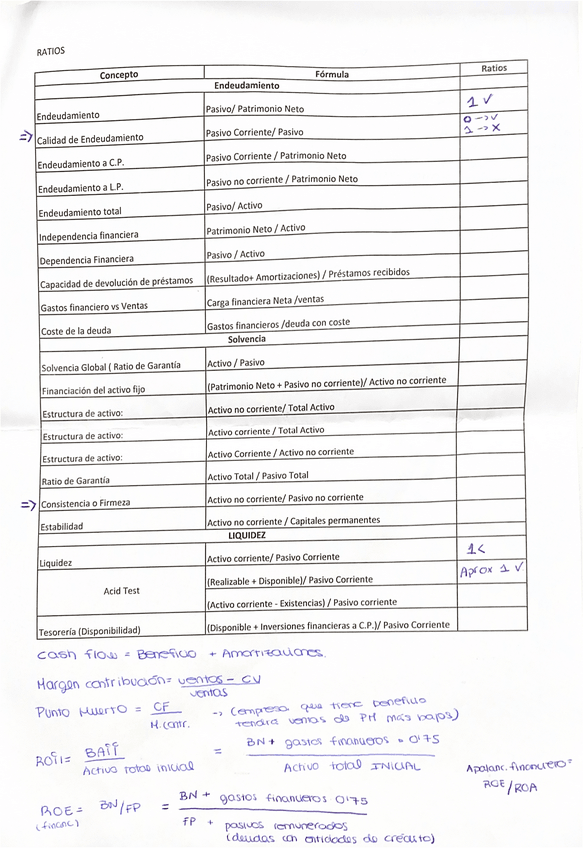 RATIOS
Concepto Fórmula Ratios
Endeudamiento
Endeudamiento Pasivo/ Patrimonio Neto 1 ✓
⇒ Calidad de Endeudamiento Pasivo Corriente/ Pasivo 0 -> ✓
1 -> X
Endeudamiento a C.P. Pasivo Corriente / Patrimonio Neto
Endeudamiento a L.P. Pasivo no corriente / Patrimonio Neto
Endeudamiento total Pasivo/ Activo
Independencia financiera Patrimonio Neto / Activo
Dependencia Financiera Pasivo / Activo
Capacidad de devolución de préstamos (Resultado+ Amortizaciones) / Préstamos recibidos
Gastos financiero vs Ventas Carga financiera Neta /ventas
Coste de la deuda Gastos financieros /deuda con coste
Solvencia
Solvencia Global ( Ratio de Garantía Activo / Pasivo
Financiación del activo fijo (Patrimonio Neto + Pasivo no corriente)/ Activo no corriente
Estructura de activo: Activo no corriente/ Total Activo
Estructura de activo: Activo corriente / Total Activo
Estructura de activo: Activo Corriente / Activo no corriente
Ratio de Garantía Activo Total / Pasivo Total
⇒ Consistencia o Firmeza Activo no corriente/ Pasivo no corriente
Estabilidad Activo no corriente / Capitales permanentes
LIQUIDEZ
Liquidez Activo corriente/ Pasivo Corriente 1<
Acid Test (Realizable + Disponible)/ Pasivo Corriente Aprox 1 ✓
(Activo corriente - Existencias) / Pasivo corriente
Tesorería (Disponibilidad) (Disponible + Inversiones financieras a C.P.)/ Pasivo Corriente
Cash flow = Beneficio + Amortizaciones.
Margen contribución = ventas - CV
ventas
Punto Muerto = CF -> (empresa que tiene beneficio
M. contr. tendrá ventas de PM más bajas)
ROI = BAII = BN + gastos financieros · 0'75
Activo total inicial Activo total INICIAL
Apalanc. financiero =
ROE/ROA
ROE = BN/FP = BN + gastos financieros 0'75
(financ) FP + pasivos remunerados
(deudas con entidades de crédito)